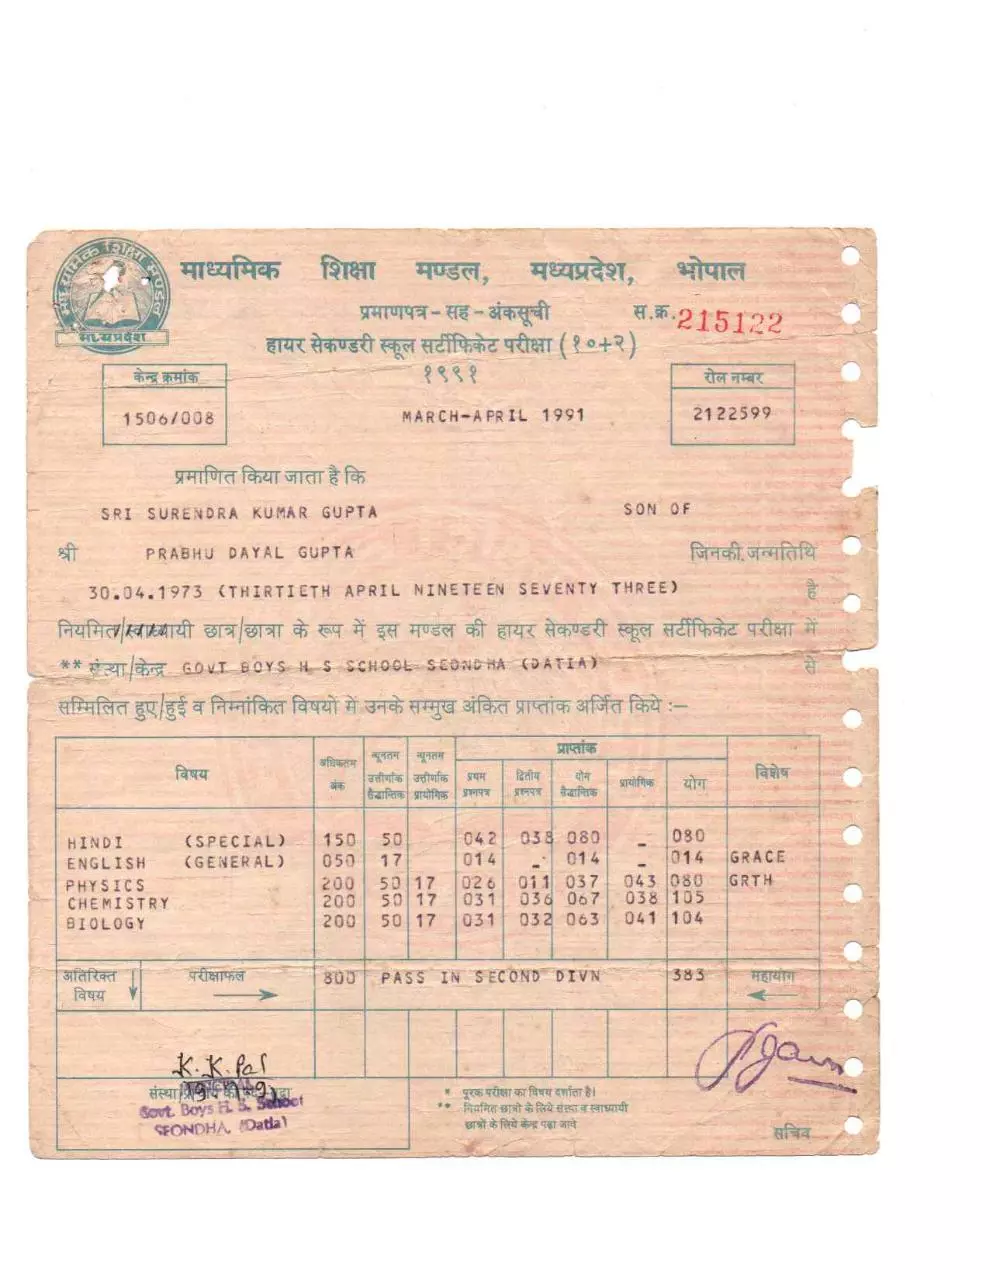 माध्यमिक शिक्षा मण्डल, मध्यप्रदेश, भोपाल
मध्यप्रदेश
प्रमाणपत्र-सह-अंकसूची स.क्र. 215122
हायर सेकण्डरी स्कूल सर्टीफिकेट परीक्षा (१०+२)
१९९१
केन्द्र क्रमांक
1506/008
MARCH-APRIL 1991
रोल नम्बर
2122599
प्रमाणित किया जाता है कि
SRI SURENDRA KUMAR GUPTA SON OF
श्री PRABHU DAYAL GUPTA जिनकी जन्मतिथि
30.04.1973 (THIRTIETH APRIL NINETEEN SEVENTY THREE) है
नियमित/स्वाध्यायी छात्र/छात्रा के रूप में इस मण्डल की हायर सेकण्डरी स्कूल सर्टीफिकेट परीक्षा में
** संस्था/केन्द्र GOVT BOYS H S SCHOOL SEONDHA (DATIA) से
सम्मिलित हुए/हुई व निम्नांकित विषयो में उनके सम्मुख अंकित प्राप्तांक अर्जित किये :—
विषय अधिकतम अंक न्यूनतम उत्तीर्णांक सैद्धान्तिक न्यूनतम उत्तीर्णांक प्रायोगिक प्राप्तांक विशेष
प्रथम प्रश्नपत्र द्वितीय प्रश्नपत्र योग सैद्धान्तिक प्रायोगिक योग
HINDI (SPECIAL) 150 50 042 038 080 _ 080
ENGLISH (GENERAL) 050 17 014 _ 014 _ 014 GRACE
PHYSICS 200 50 17 026 011 037 043 080 GRTH
CHEMISTRY 200 50 17 031 036 067 038 105
BIOLOGY 200 50 17 031 032 063 041 104
अतिरिक्त विषय परीक्षाफल 800 PASS IN SECOND DIVN 383 महायोग
K.K.Pal
संस्था
Govt. Boys H. S. School
SEONDHA. (Datia)
* पूरक परीक्षा का विषय दर्शाता है।
** नियमित छात्रो के लिये संस्था व स्वाध्यायी
छात्रों के लिये केन्द्र पढ़ा जावे
सचिव